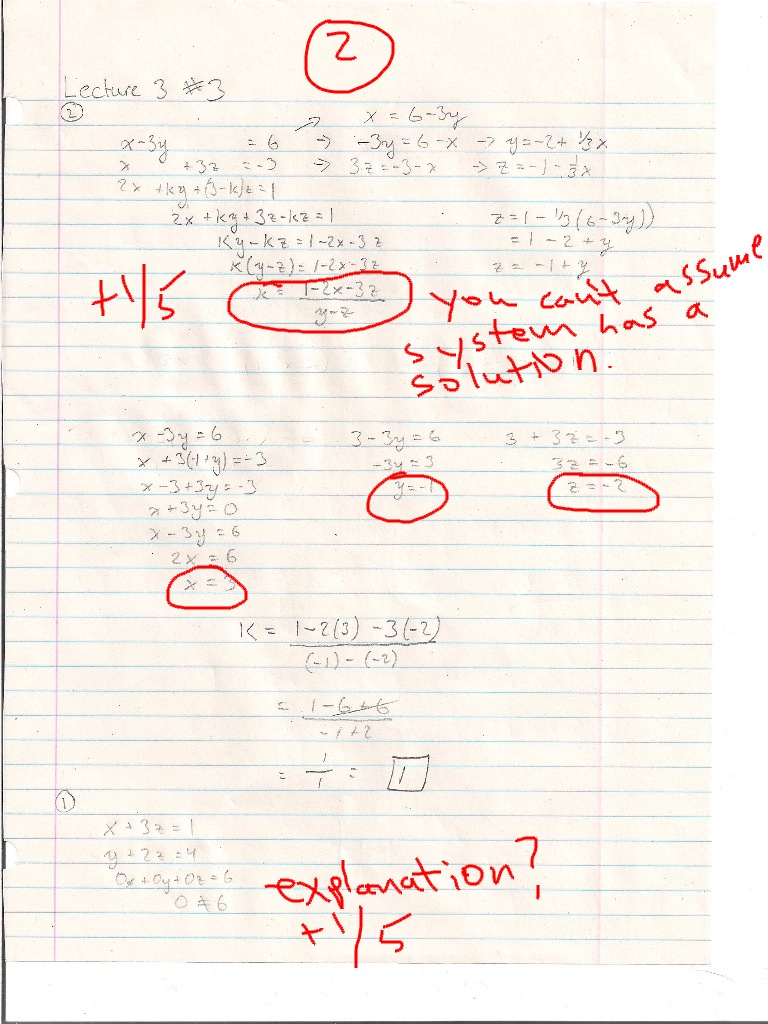 2
Lecture 3 #3
②
x = 6-3y
x-3y = 6 → -3y = 6-x → y = -2 + 1/3x
x +3z = -3 → 3z = -3-x → z = -1 - 1/3x
2x + ky + (3-k)z = 1
2x + ky + 3z - kz = 1
z = 1 - 1/3(6-3y))
ky - kz = 1-2x-3z
= 1 - 2 + y
k(y-z) = 1-2x-3z
z = -1 + y
+1/5
k = 1-2x-3z / y-z
you can't assume
system has a
solution.
x - 3y = 6
3 - 3y = 6
3 + 3z = -3
x + 3(-1+y) = -3
-3y = 3
3z = -6
x - 3 + 3y = -3
y = -1
z = -2
x + 3y = 0
x - 3y = 6
2x = 6
x = 3
K = 1-2(3) -3(-2) / (-1) - (-2)
= 1-6+6 / -1+2
= 1/1 = 1
①
x + 3z = 1
y + 2z = 4
0x + 0y + 0z = 6
0 ≠ 6
explanation?
+1/5